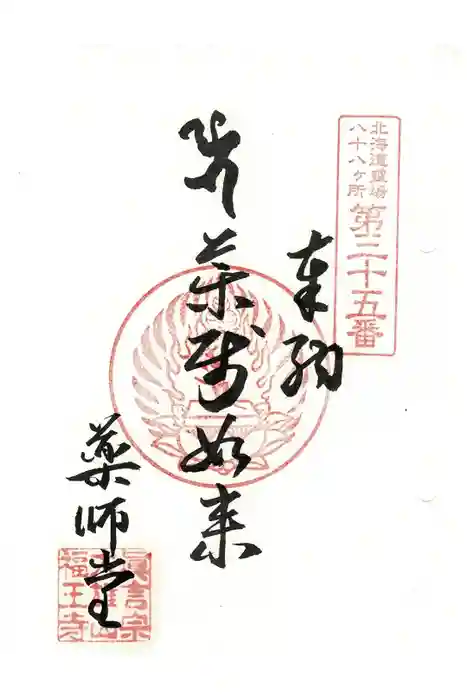 北海道霊場
八十八ヶ所
第三十五番
奉納
薬師如来
薬師堂
真言宗
福王寺